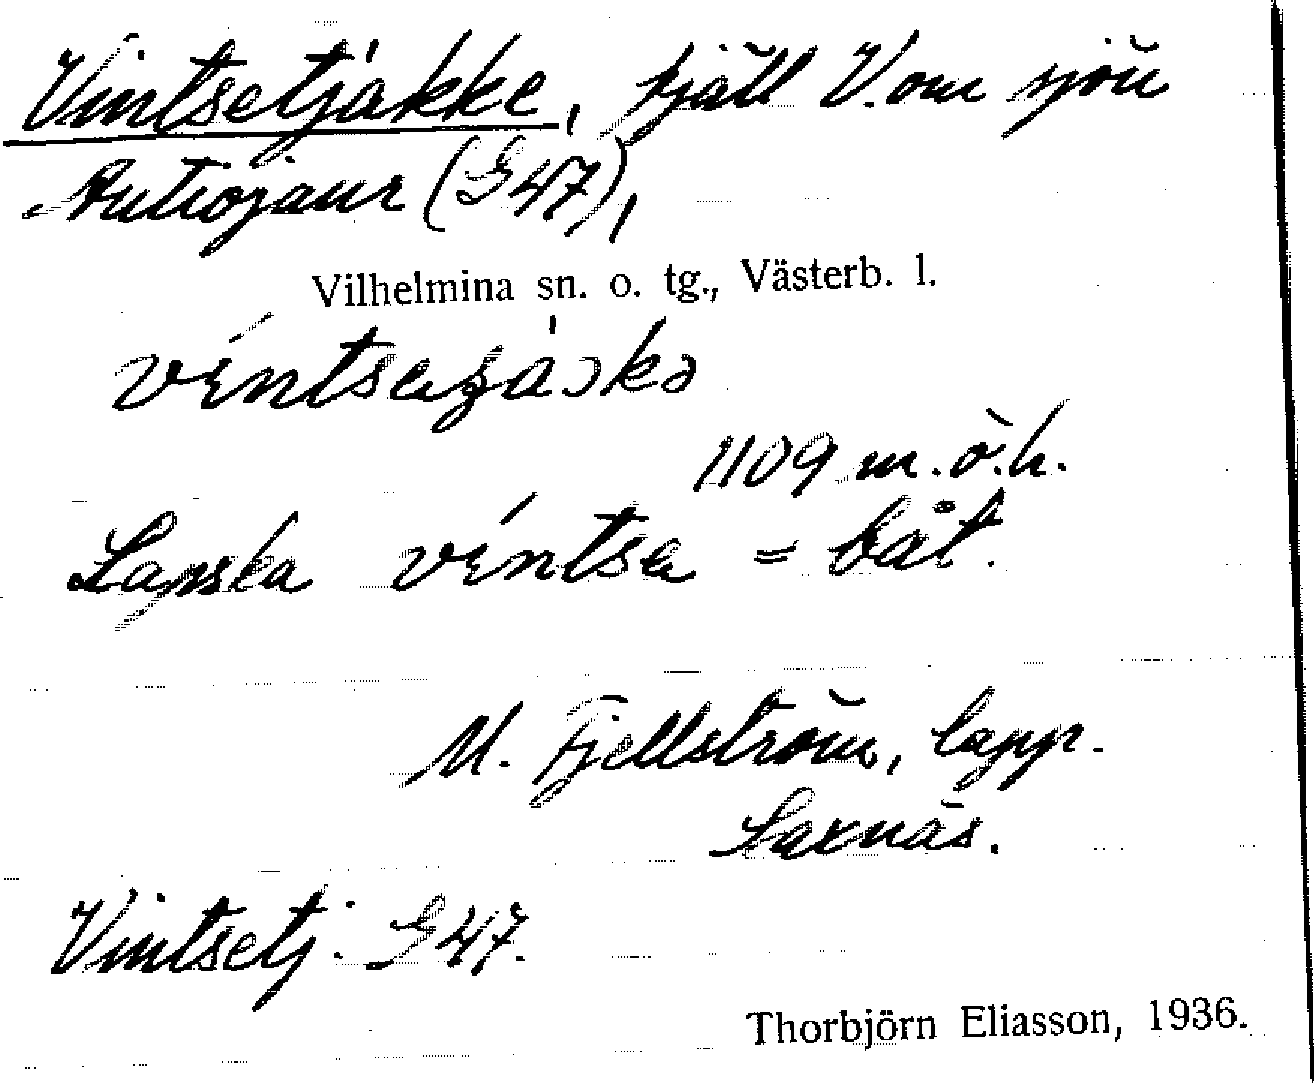 Vintsetjåkke, fjäll V. om sjön
Autiojaur (G47),
Vilhelmina sn. o. tg., Västerb. l.
1109 m. ö. h.
Lapska víntsa = båt.
M. Fjellström, lapp.
Saxnäs.
Vintsetj. G 47.
Thorbjörn Eliasson, 1936.